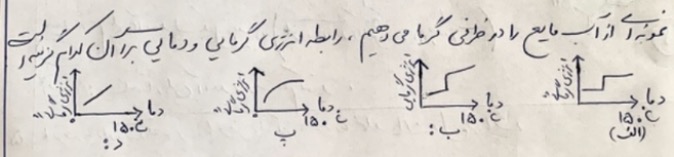 نمونه‌ای از آب مایع را در ظرفی گرما می‌دهیم، رابطه انرژی گرمایی و دمایی برای آن کدام گزینه است
انرژی گرمایی دما ۱۵۰°C (الف)
انرژی گرمایی دما ۱۵۰°C ب:
انرژی گرمایی دما ۱۵۰°C پ
انرژی گرمایی دما ۱۵۰°C د: